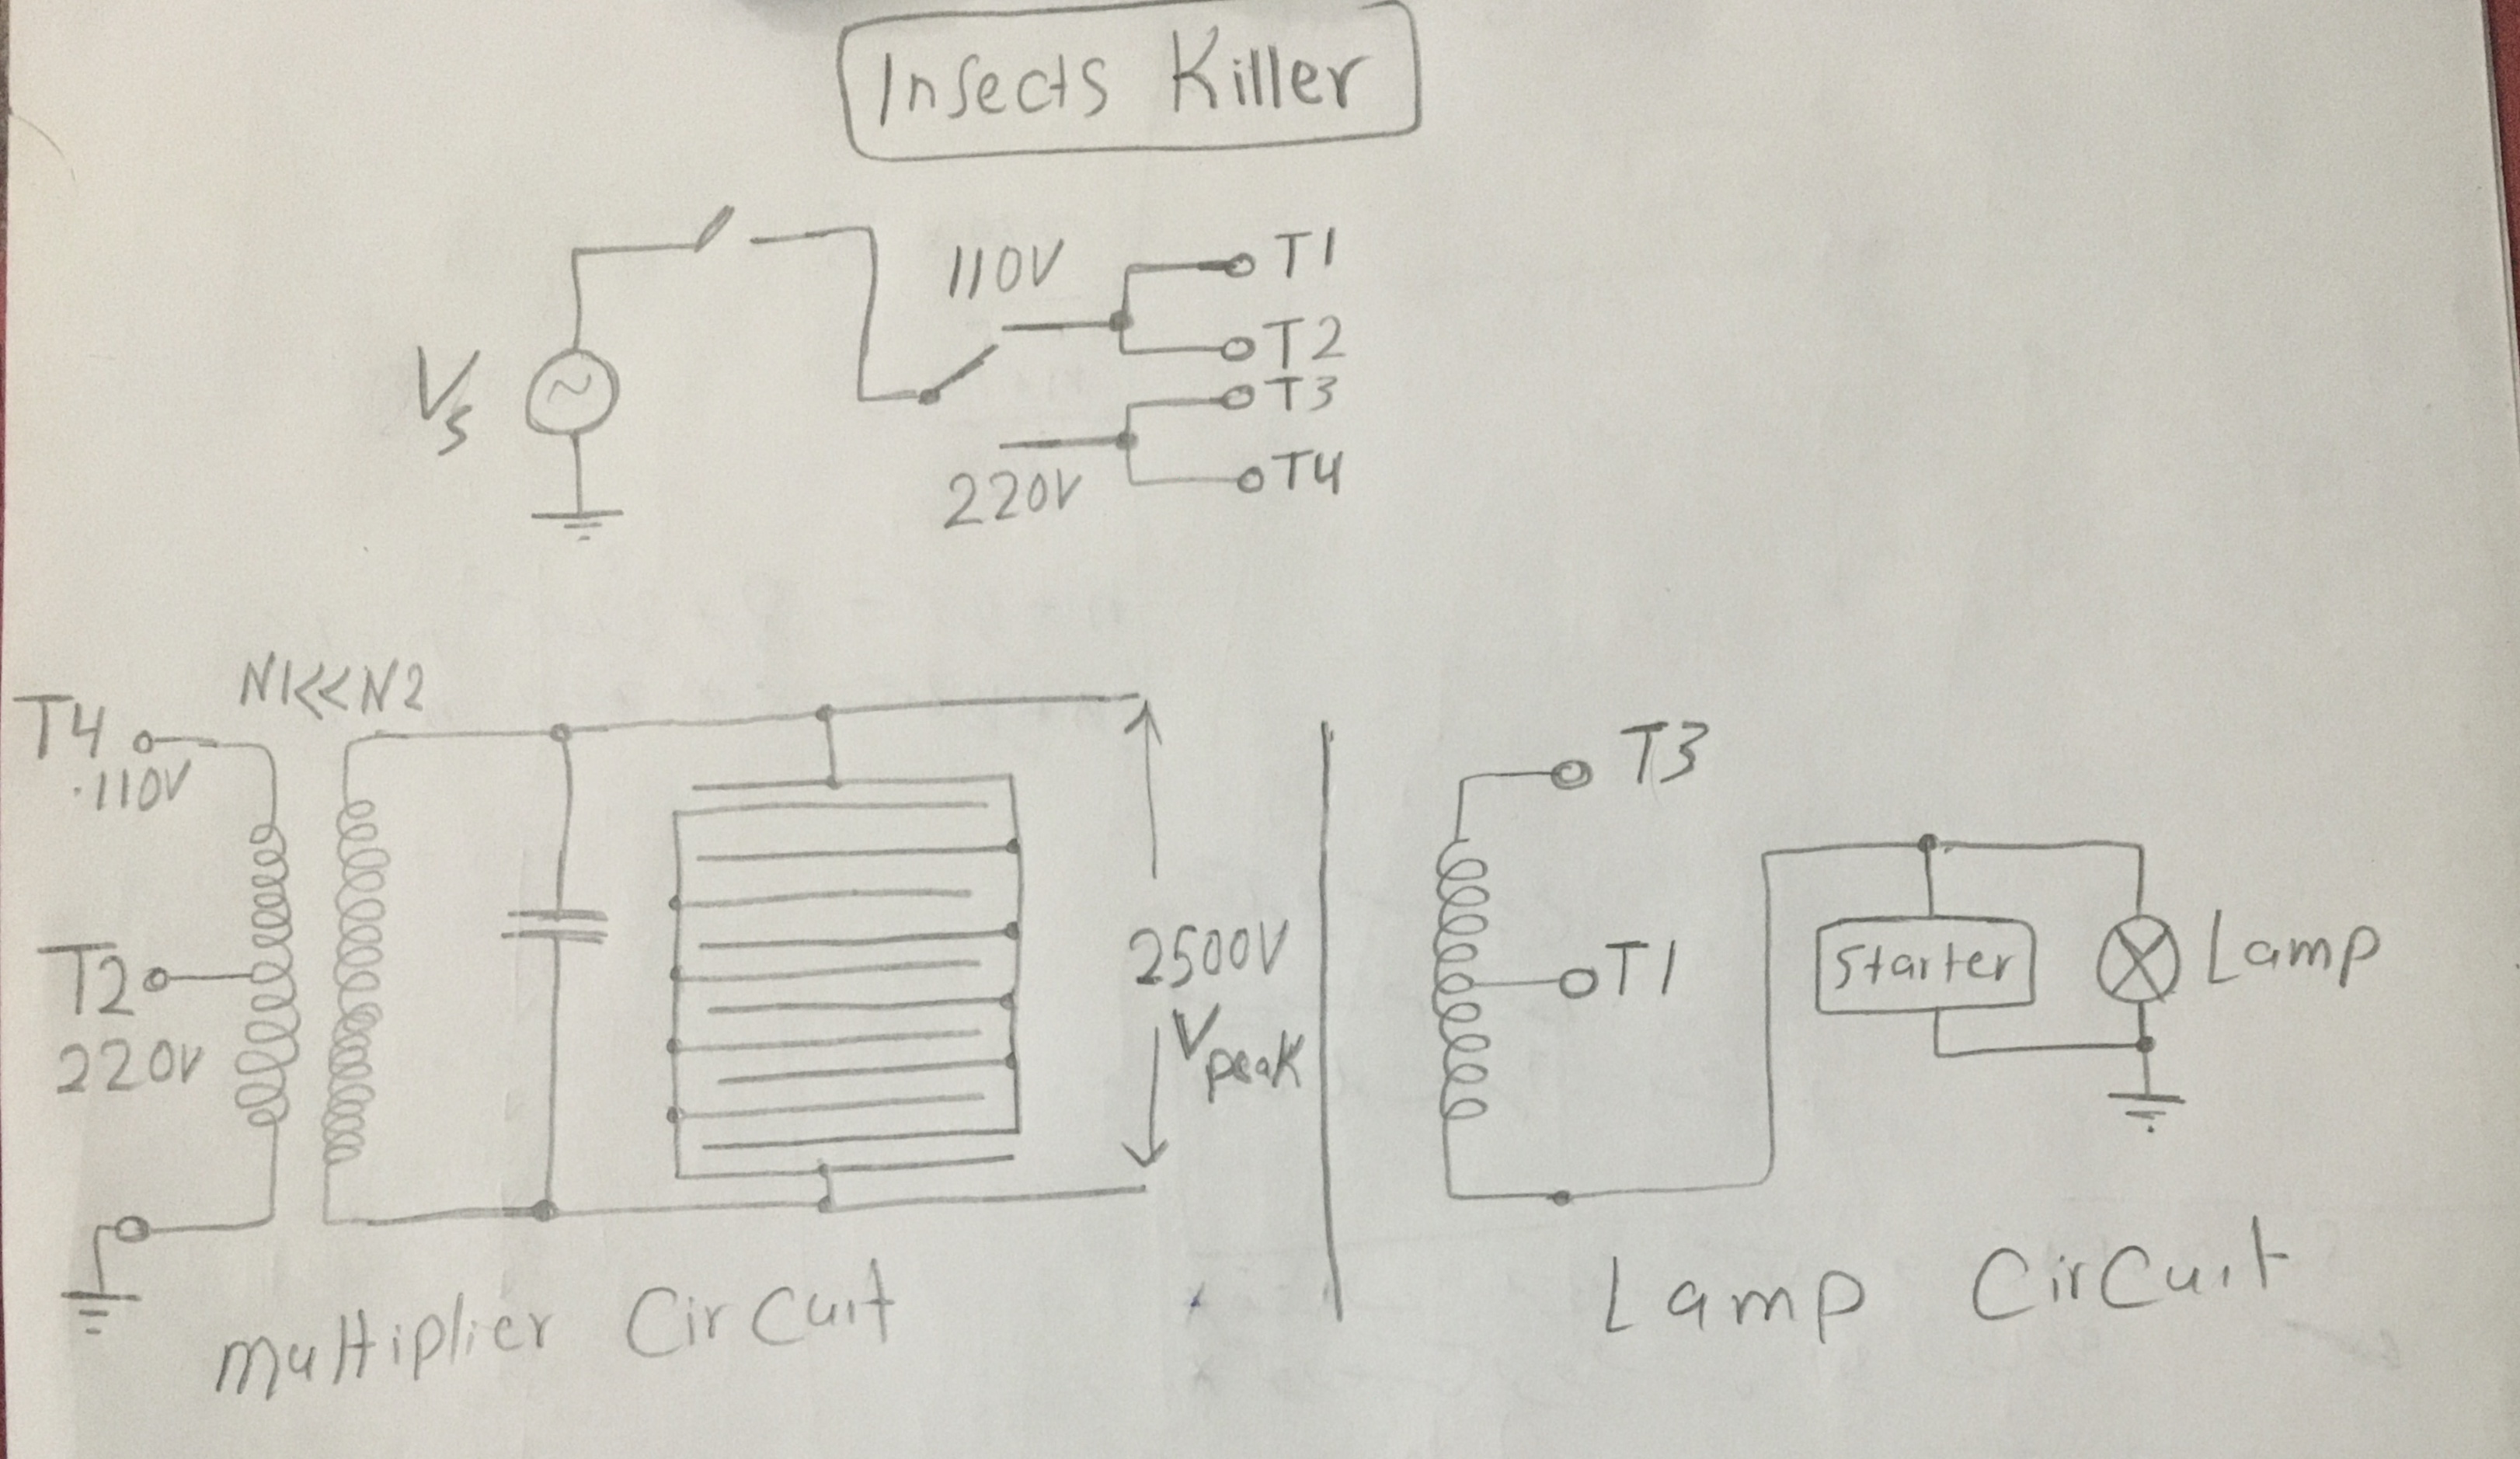 Insects Killer
Vs
110V
T1
T2
T3
220V
T4
N1<<N2
T4
110V
T2
220V
2500V
Vpeak
Multiplier Circuit
T3
T1
Starter
Lamp
Lamp Circuit